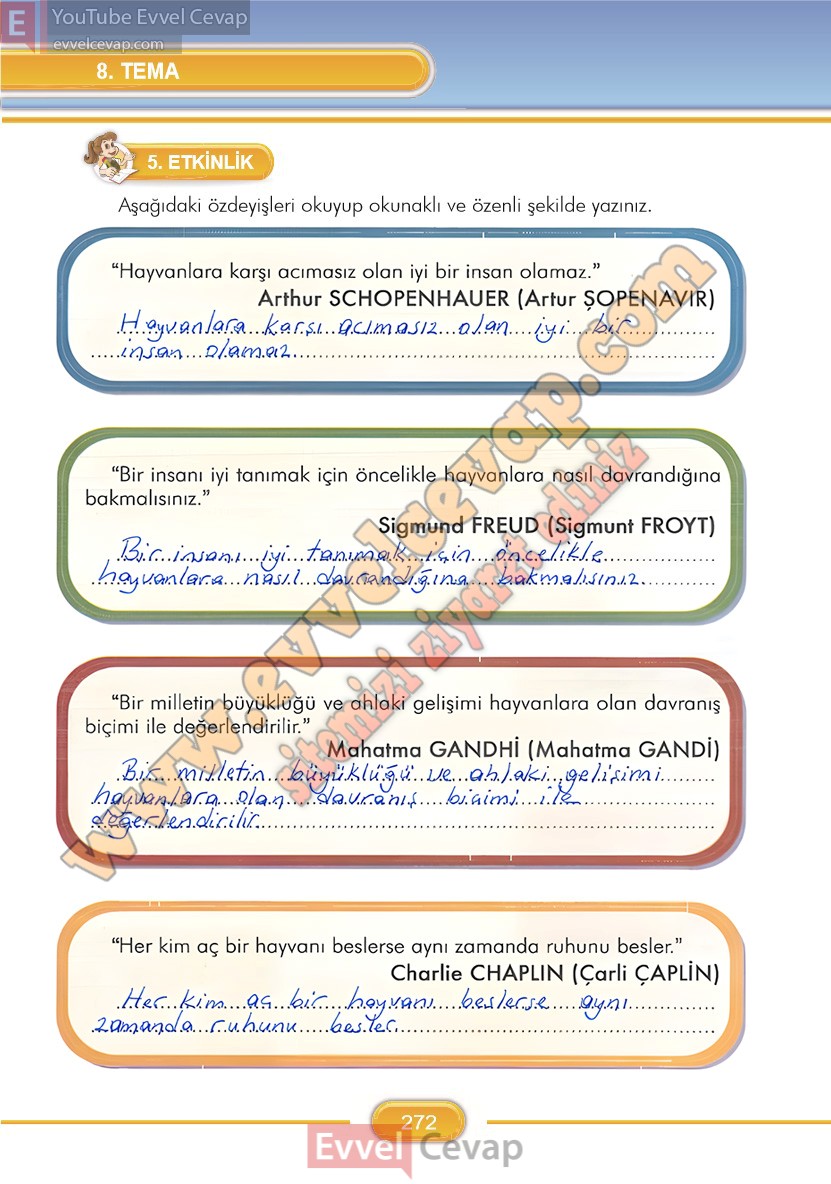 YouTube Evvel Cevap
evvelcevap.com
8. TEMA
5. ETKİNLİK
Aşağıdaki özdeyişleri okuyup okunaklı ve özenli şekilde yazınız.
“Hayvanlara karşı acımasız olan iyi bir insan olamaz.”
Arthur SCHOPENHAUER (Artur ŞOPENAVIR)
Hayvanlara karşı acımasız olan iyi bir
insan olamaz.
“Bir insanı iyi tanımak için öncelikle hayvanlara nasıl davrandığına
bakmalısınız.”
Sigmund FREUD (Sigmunt FROYT)
Bir insanı iyi tanımak için öncelikle
hayvanlara nasıl davrandığına bakmalısınız.
“Bir milletin büyüklüğü ve ahlaki gelişimi hayvanlara olan davranış
biçimi ile değerlendirilir.”
Mahatma GANDHİ (Mahatma GANDİ)
Bir milletin büyüklüğü ve ahlaki gelişimi
hayvanlara olan davranış biçimi ile
değerlendirilir.
“Her kim aç bir hayvanı beslerse aynı zamanda ruhunu besler.”
Charlie CHAPLIN (Çarli ÇAPLİN)
Her kim aç bir hayvanı beslerse aynı
zamanda ruhunu besler.
www.evvelcevap.com
sitemizi ziyaret ediniz
272
Evvel Cevap